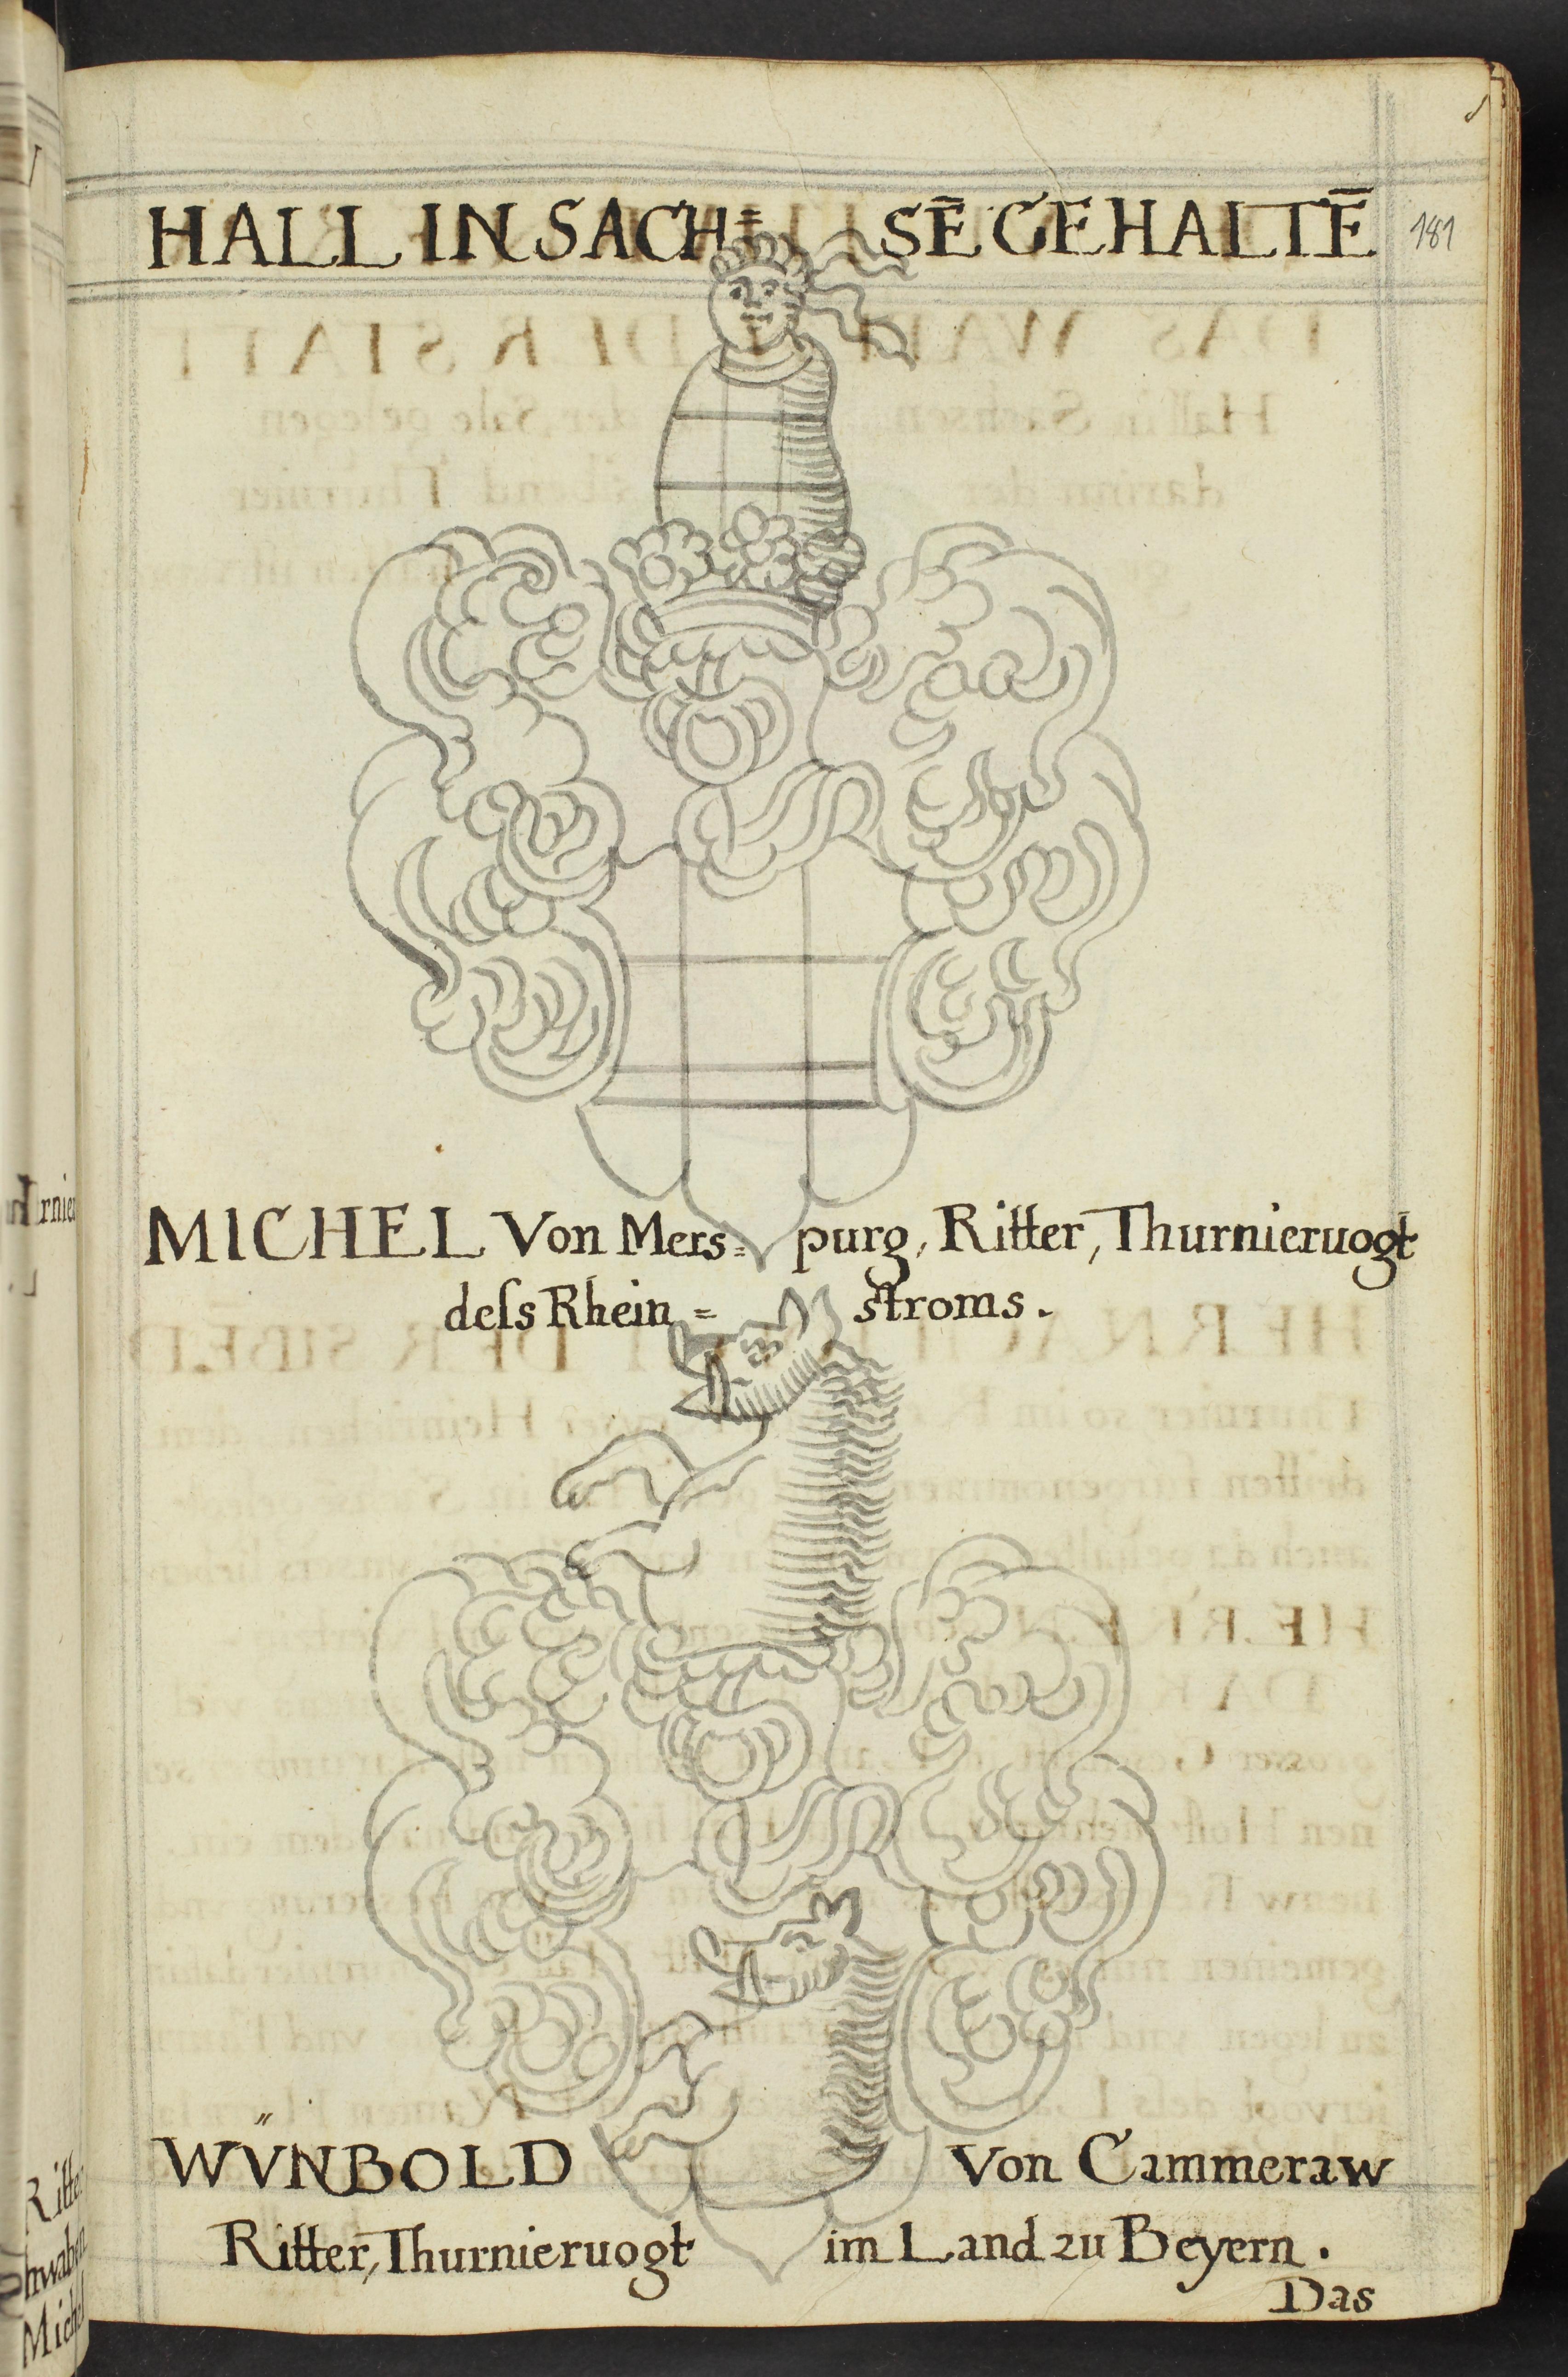 HALL IN SACH= SĒ GEHALTĒ 181
MICHEL Von Mers= purg, Ritter, Thurnieruogt
deſs Rhein= stroms.
WV̋NBOLD Von Cammeraw
Ritter, Thurnieruogt im Land zu Beyern.
Das